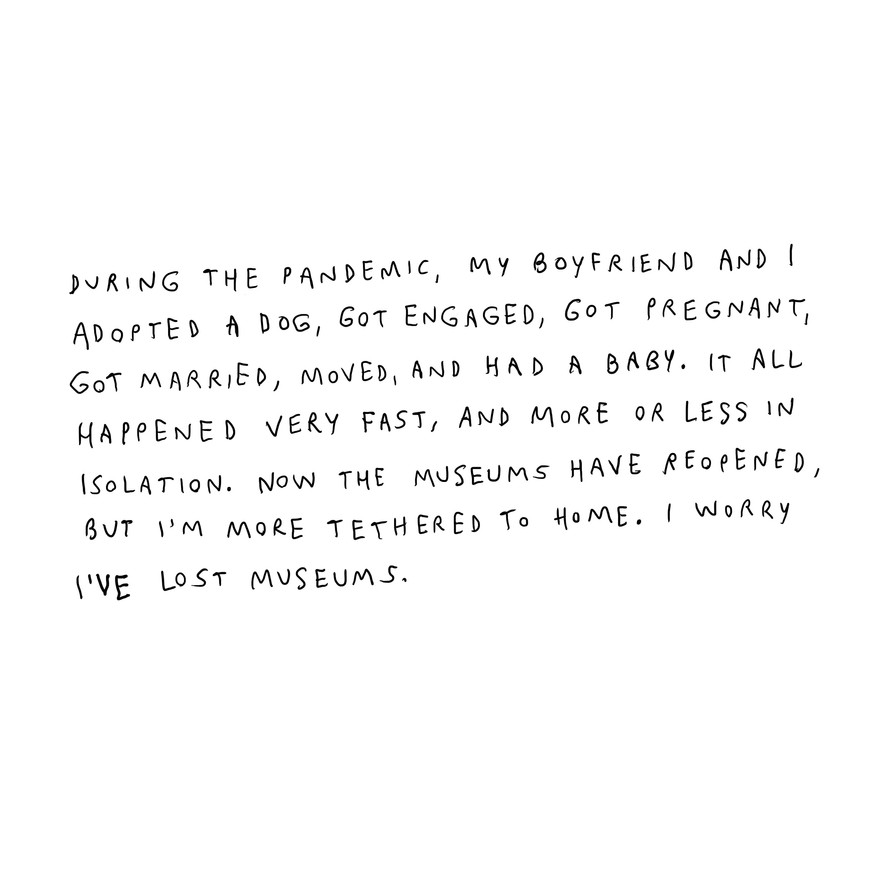 DURING THE PANDEMIC, MY BOYFRIEND AND I
ADOPTED A DOG, GOT ENGAGED, GOT PREGNANT,
GOT MARRIED, MOVED, AND HAD A BABY. IT ALL
HAPPENED VERY FAST, AND MORE OR LESS IN
ISOLATION. NOW THE MUSEUMS HAVE REOPENED,
BUT I'M MORE TETHERED TO HOME. I WORRY
I'VE LOST MUSEUMS.